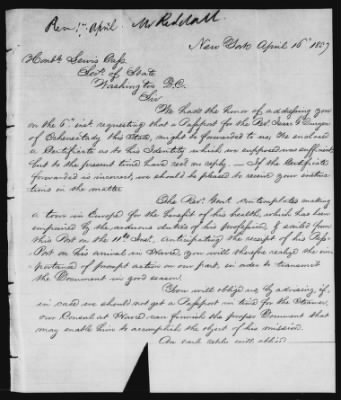 Rec. 17 April. Mr Riddall
New York April 16th 1857
Honble Lewis Cass
Secy of State
Washington D.C.
Sir
We had the honor of addressing you
on the 6th inst. requesting that a Passport for the Revd Isaac G Duryee
of Schenectady this State, might be forwarded to us, We enclosed
a Certificate as to his Identity which we supposed was sufficient
but to the present time have recd no reply — If the Certificate
forwarded is incorrect, we should be pleased to receive your instruc
tions in the matter
The Revd Gent contemplates making
a tour in Europe for the benefit of his health, which has been
impaired by the arduous duties of his profession, & sailed from
this Port on the 11th Inst, Anticipating the receipt of his Pass-
Port on his arrival in Havre you will therefore realize the im
portance of prompt action on our part, in order to transmit
the Document in good season!
You will oblige us, by advising, if
in case we should not get a Passport in time for the Steamer,
our Consul at Havre can furnish the proper Document that
may enable him to accomplish the object of his mission.
An early reply will oblige